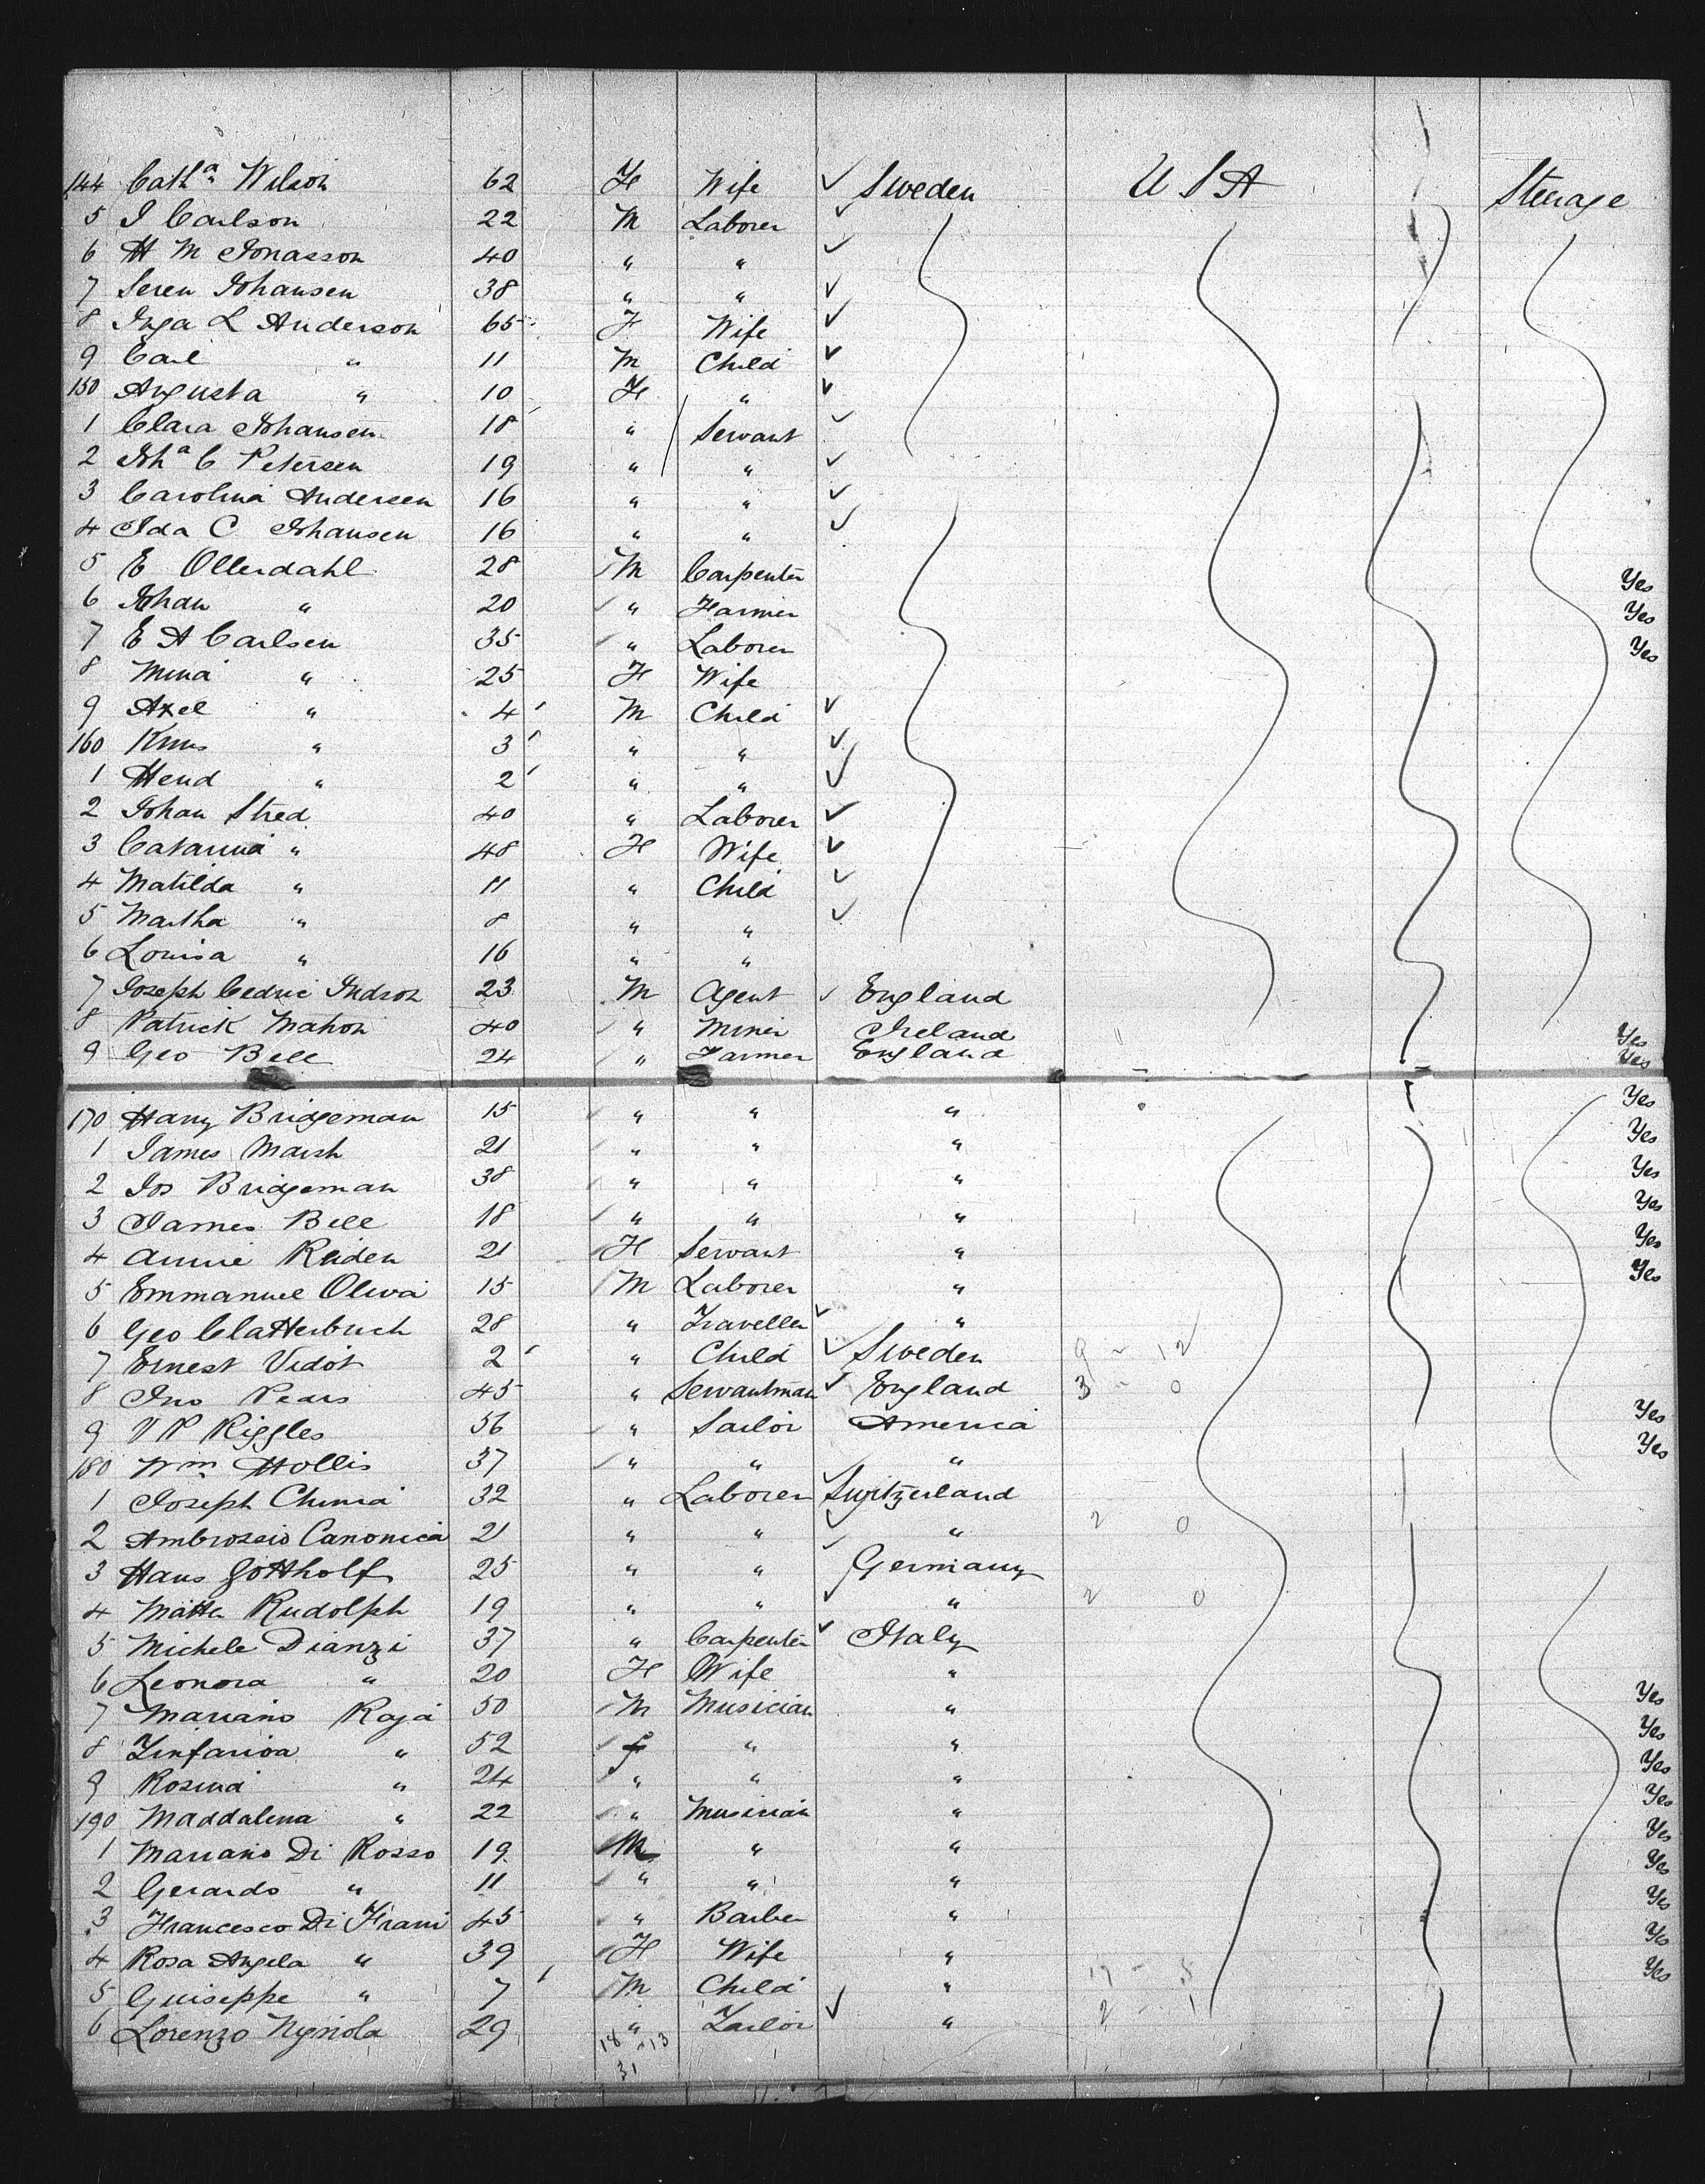 144 Cathª Wilson 62 F Wife ✓ Sweden U S A Steerage
5 J Carlson 22 M Laborer ✓
6 H M Jonasson 40 " " ✓
7 Seren Johansen 38 " " ✓
8 Inga L Anderson 65 F Wife ✓
9 Carl " 11 M Child ✓
150 Augusta " 10 F " ✓
1 Clara Johansen 18 " Servant ✓
2 Johª C Petersen 19 " " ✓
3 Carolina Andersen 16 " " ✓
4 Ida C Johansen 16 " " ✓
5 E Ollerdahl 28 M Carpenter Yes
6 Johan " 20 " Farmer Yes
7 E A Carlsen 35 " Laborer Yes
8 Mina " 25 F Wife
9 Axel " 4 M Child ✓
160 " 3 " " ✓
1 Hend " 2 " " ✓
2 Johan Stred 40 " Laborer ✓
3 Catarina " 48 F Wife ✓
4 Matilda " 11 " Child ✓
5 Martha " 8 " " ✓
6 Louisa " 16 " "
7 Joseph Cedric 23 M Agent ✓ England
8 Patrick Mahon 40 " Miner Ireland Yes
9 Geo Bell 24 " Farmer England Yes
170 Harry Bridgeman 15 " " " Yes
1 James Marsh 21 " " " Yes
2 Jos Bridgeman 38 " " " Yes
3 James Bell 18 " " " Yes
4 Annie Reiden 21 F Servant " Yes
5 Emmanuel Oliva 15 M Laborer " Yes
6 Geo Clatterbuch 28 " Traveller ✓ "
7 Ernest Vidot 2 " Child ✓ Sweden 9 - 12
8 Jno Pears 45 " Servantman ✓ England 3 - 0
9 V P Riggles 56 " Sailor America Yes
180 Wm Hollis 37 " " " Yes
1 Joseph Chinia 32 " Laborer ✓ Switzerland
2 Ambrossio Canonica 21 " " ✓ " 2 0
3 Hans Gottholf 25 " " ✓ Germany
4 Matta Rudolph 19 " " ✓ " 2 0
5 Michele Dianzi 37 " Carpenter ✓ Italy
6 Leonora " 20 F Wife "
7 Mariano Raja 50 M Musician " Yes
8 " 52 f " " Yes
9 Rosina " 24 " " " Yes
190 Maddalena " 22 " Musician " Yes
1 Mariano Di Rosso 19 M " " Yes
2 Gerardo " 11 " " " Yes
3 Francesco Di Frani 45 " Barber " Yes
4 Rosa Angela " 39 F Wife " Yes
5 Guiseppe " 7 M Child " 17 - 5 Yes
6 Lorenzo 29 " Tailor ✓ " 2 - 1
18 - 13
31